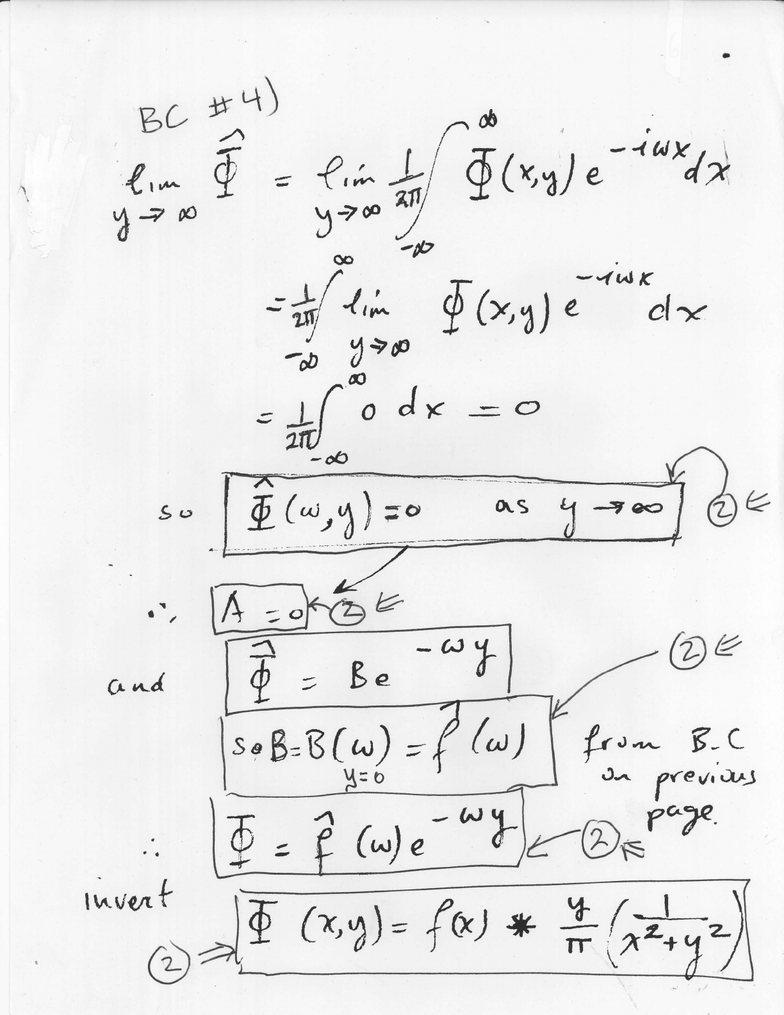 BC #4)
lim y→∞ Φ̂ = lim y→∞ 1/2π ∫_{-∞}^{∞} Φ(x,y) e^{-iωx} dx
= 1/2π ∫_{-∞}^{∞} lim y→∞ Φ(x,y) e^{-iωx} dx
= 1/2π ∫_{-∞}^{∞} 0 dx = 0
so Φ̂(ω,y) = 0 as y → ∞ ② ⇐
∴ A = 0 ② ⇐
and Φ̂ = Be^{-ωy} ② ⇐
so B = B(ω) = f̂(ω) from B.C
y=0 on previous
page.
∴ Φ = f̂(ω) e^{-ωy} ② ⇐
invert Φ(x,y) = f(x) * y/π (1/(x²+y²))
② ⇒